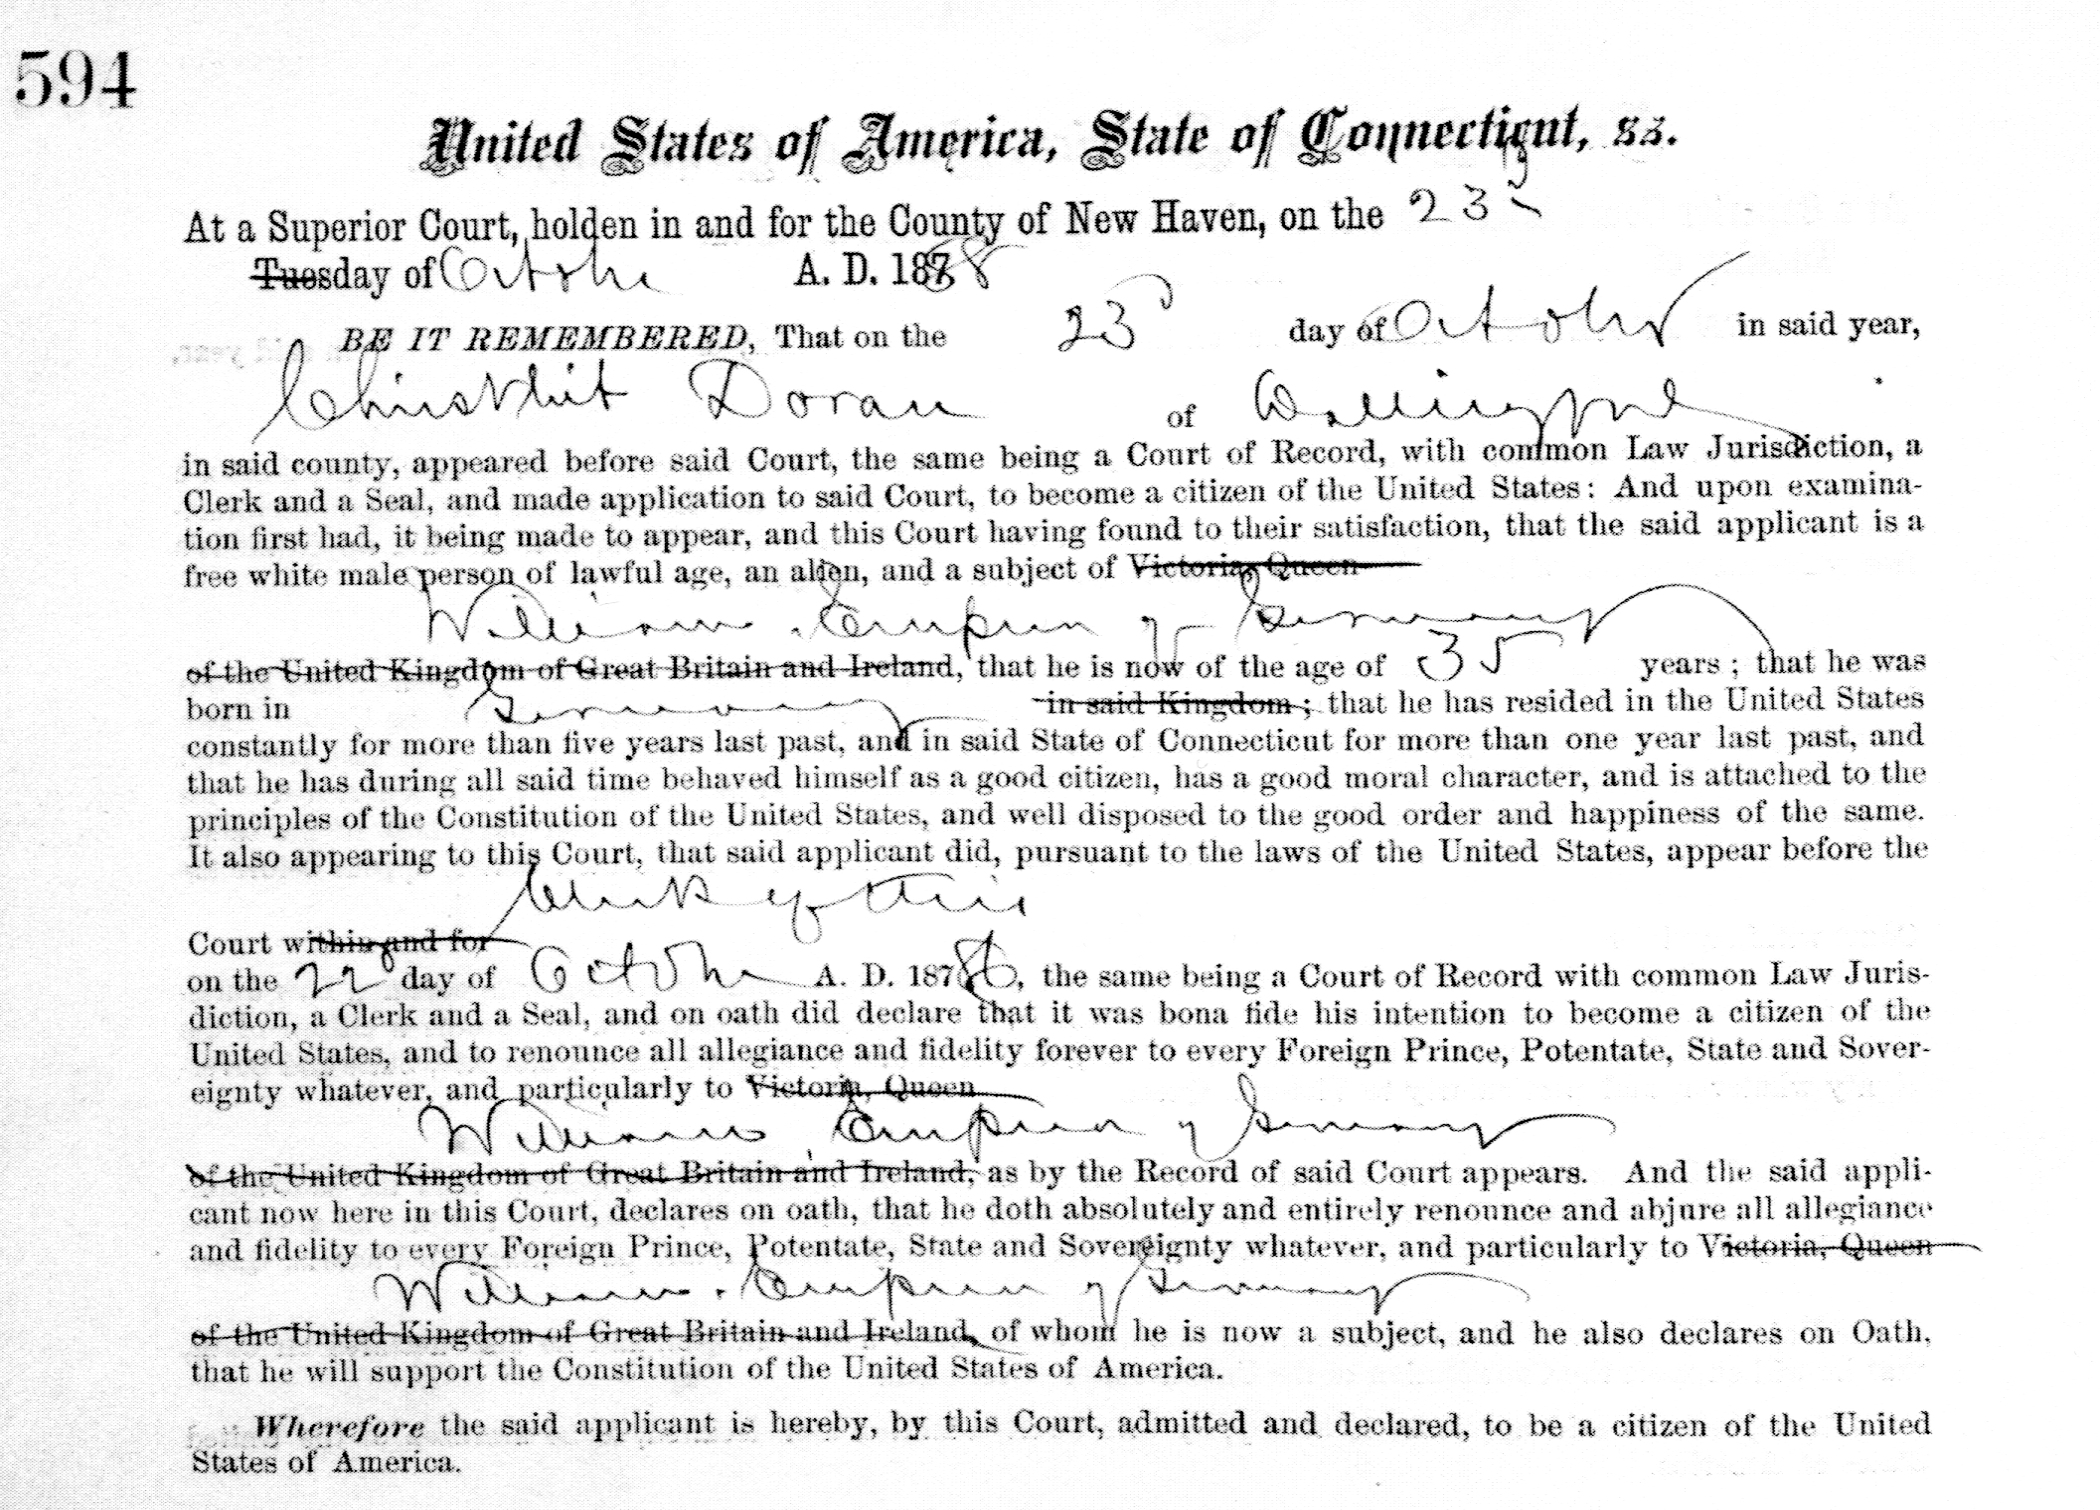 594
United States of America, State of Connecticut, ss.
At a Superior Court, holden in and for the County of New Haven, on the 23d
Tuesday of October A. D. 1888
BE IT REMEMBERED, That on the 23d day of October in said year,
Doran of Wallingford
in said county, appeared before said Court, the same being a Court of Record, with common Law Jurisdiction, a
Clerk and a Seal, and made application to said Court, to become a citizen of the United States: And upon examina-
tion first had, it being made to appear, and this Court having found to their satisfaction, that the said applicant is a
free white male person of lawful age, an alien, and a subject of Victoria, Queen
William Emperor of Germany
of the United Kingdom of Great Britain and Ireland, that he is now of the age of 35 years; that he was
born in Germany in said Kingdom; that he has resided in the United States
constantly for more than five years last past, and in said State of Connecticut for more than one year last past, and
that he has during all said time behaved himself as a good citizen, has a good moral character, and is attached to the
principles of the Constitution of the United States, and well disposed to the good order and happiness of the same.
It also appearing to this Court, that said applicant did, pursuant to the laws of the United States, appear before the
Clerk of this
Court within and for
on the 22d day of October A. D. 1886, the same being a Court of Record with common Law Juris-
diction, a Clerk and a Seal, and on oath did declare that it was bona fide his intention to become a citizen of the
United States, and to renounce all allegiance and fidelity forever to every Foreign Prince, Potentate, State and Sover-
eignty whatever, and particularly to Victoria, Queen
William Emperor of Germany
of the United Kingdom of Great Britain and Ireland, as by the Record of said Court appears. And the said appli-
cant now here in this Court, declares on oath, that he doth absolutely and entirely renounce and abjure all allegiance
and fidelity to every Foreign Prince, Potentate, State and Sovereignty whatever, and particularly to Victoria, Queen
William Emperor of Germany
of the United Kingdom of Great Britain and Ireland, of whom he is now a subject, and he also declares on Oath,
that he will support the Constitution of the United States of America.
Wherefore the said applicant is hereby, by this Court, admitted and declared, to be a citizen of the United
States of America.